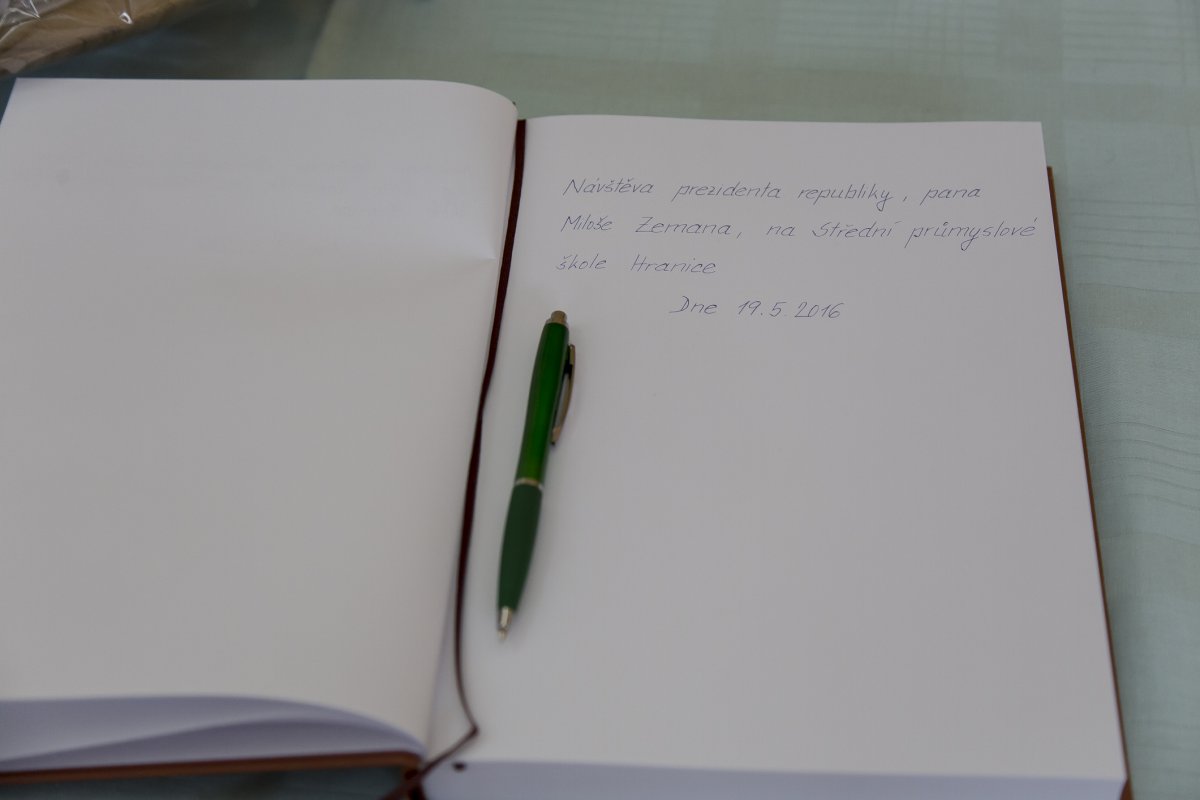 Návštěva prezidenta republiky, pana
Miloše Zemana, na Střední průmyslové
škole Hranice
Dne 19.5.2016